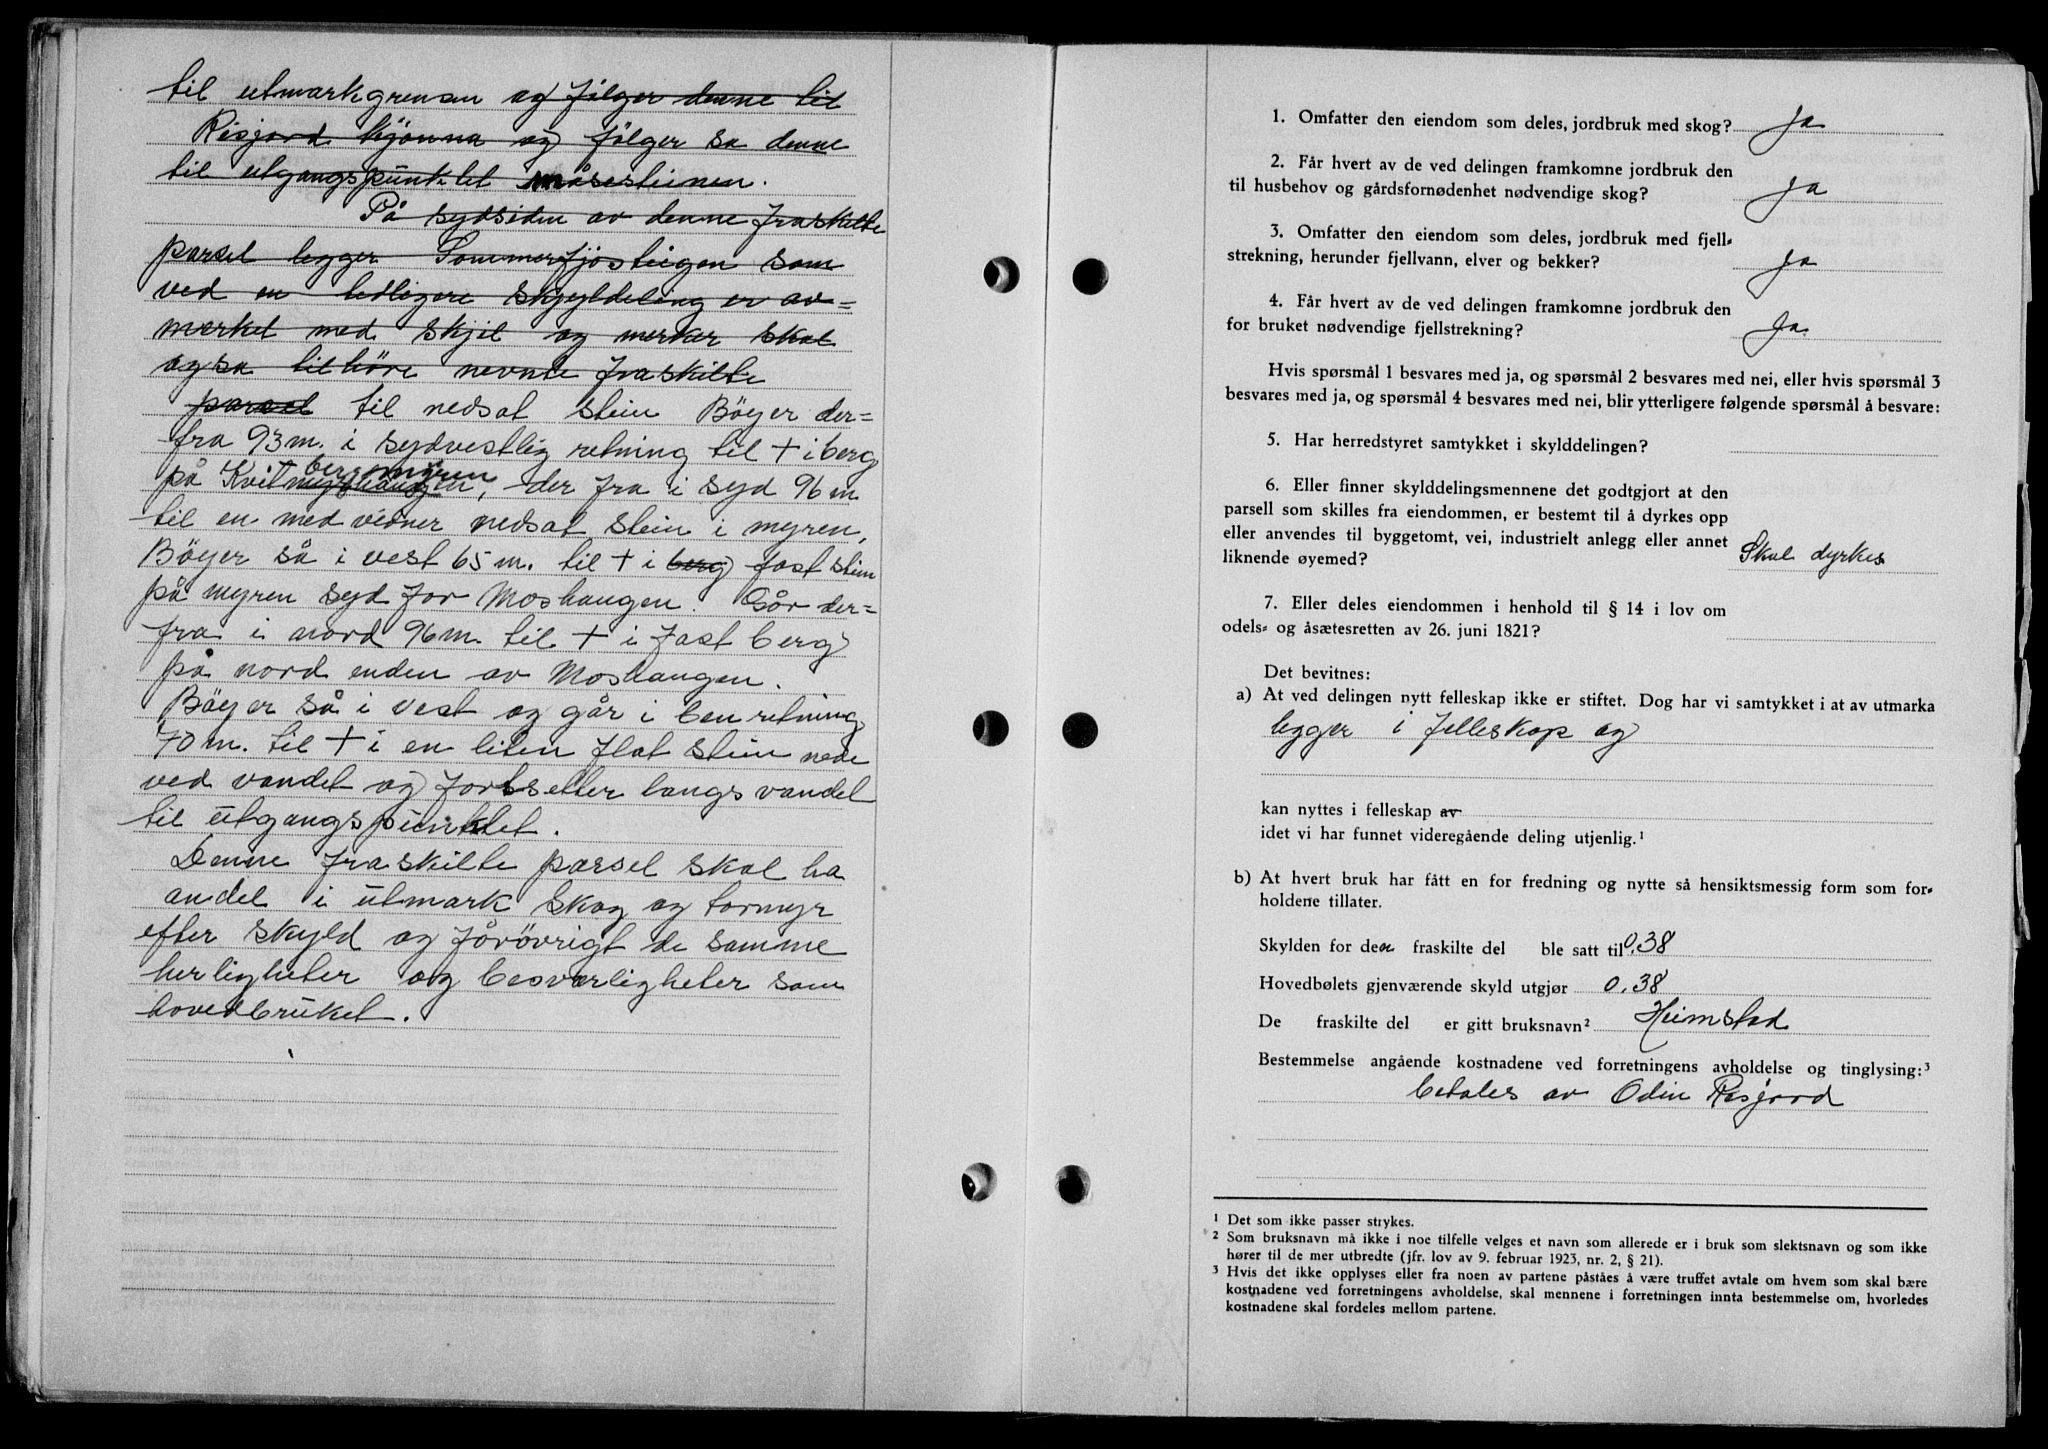 til utmarkgrensen og følger denne til
Risjord kjønna og følger sa denne
til utgangspunktet måsesteinen.
På sydsiden av denne fraskilte
parsel legger Sommerfjøsteigen som
ved en tidligere skjyldeling er av=
merket med skjel og merker skal
ogsa tilhøre nevnte fraskilte
parsel til nedsat stein Böyer der=
fra 93 m. i sydvestlig retning til + i berg
på Kvitbergmyren, der fra i syd 96 m
til en med vidner nedsat stein i myren,
Böyer så i vest 65 m. til + i berg fast stein
på myren syd for Moshaugen. Går der=
fra i nord 96 m. til + i fast berg
på nord enden av Moshaugen.
Böyer så i vest og går i ben retning
70 m. til + i en liten flat stein nede
ved vandet og fortsetter langs vandet
til utgangspunktet.
Denne fraskilte parsel skal ha
andel i utmark skog og tormyr
efter skyld og forøvrigt de samme
herligheter og besværligheter som
hovedbruket.
1. Omfatter den eiendom som deles, jordbruk med skog? Ja
2. Får hvert av de ved delingen framkomne jordbruk den
til husbehov og gårdsfornødenhet nødvendige skog? Ja
3. Omfatter den eiendom som deles, jordbruk med fjell-
strekning, herunder fjellvann, elver og bekker? Ja
4. Får hvert av de ved delingen framkomne jordbruk den
for bruket nødvendige fjellstrekning? Ja.
Hvis spørsmål 1 besvares med ja, og spørsmål 2 besvares med nei, eller hvis spørsmål 3
besvares med ja, og spørsmål 4 besvares med nei, blir ytterligere følgende spørsmål å besvare:
5. Har herredstyret samtykket i skylddelingen?
6. Eller finner skylddelingsmennene det godtgjort at den
parsell som skilles fra eiendommen, er bestemt til å dyrkes opp
eller anvendes til byggetomt, vei, industrielt anlegg eller annet
liknende øyemed? Skal dyrkes
7. Eller deles eiendommen i henhold til § 14 i lov om
odels- og åsætesretten av 26. juni 1821?
Det bevitnes:
a) At ved delingen nytt felleskap ikke er stiftet. Dog har vi samtykket i at av utmarka
legger i felleskap og
kan nyttes i felleskap av
idet vi har funnet videregående deling utjenlig.¹
b) At hvert bruk har fått en for fredning og nytte så hensiktsmessig form som for-
holdene tillater.
Skylden for den fraskilte del ble satt til 0.38
Hovedbølets gjenværende skyld utgjør 0.38
De fraskilte del er gitt bruksnavn² Heimstad
Bestemmelse angående kostnadene ved forretningens avholdelse og tinglysing:³
betales av Odin Risjord
¹ Det som ikke passer strykes.
² Som bruksnavn må ikke i noe tilfelle velges et navn som allerede er i bruk som slektsnavn og som ikke
hører til de mer utbredte (jfr. lov av 9. februar 1923, nr. 2, § 21).
³ Hvis det ikke opplyses eller fra noen av partene påståes å være truffet avtale om hvem som skal bære
kostnadene ved forretningens avholdelse, skal mennene i forretningen innta bestemmelse om, hvorledes
kostnadene skal fordeles mellom partene.